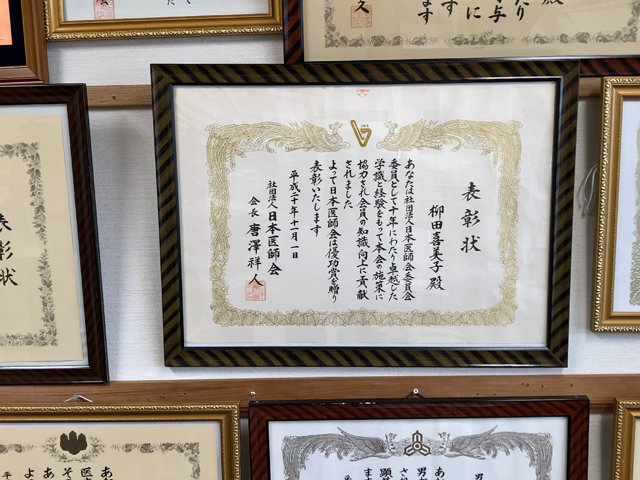 表彰状
柳田喜美子殿
あなたは社団法人日本医師会委員会
委員として十年にわたり卓越した
学識と経験をもって本会の施策に
協力され会員の知識向上に貢献
されました
よって日本医師会は優功賞を贈り
表彰いたします
平成二十年十一月一日
社団法人日本医師会
会長 唐澤祥人
表彰状
殿
たり
与
に
す
ます
久